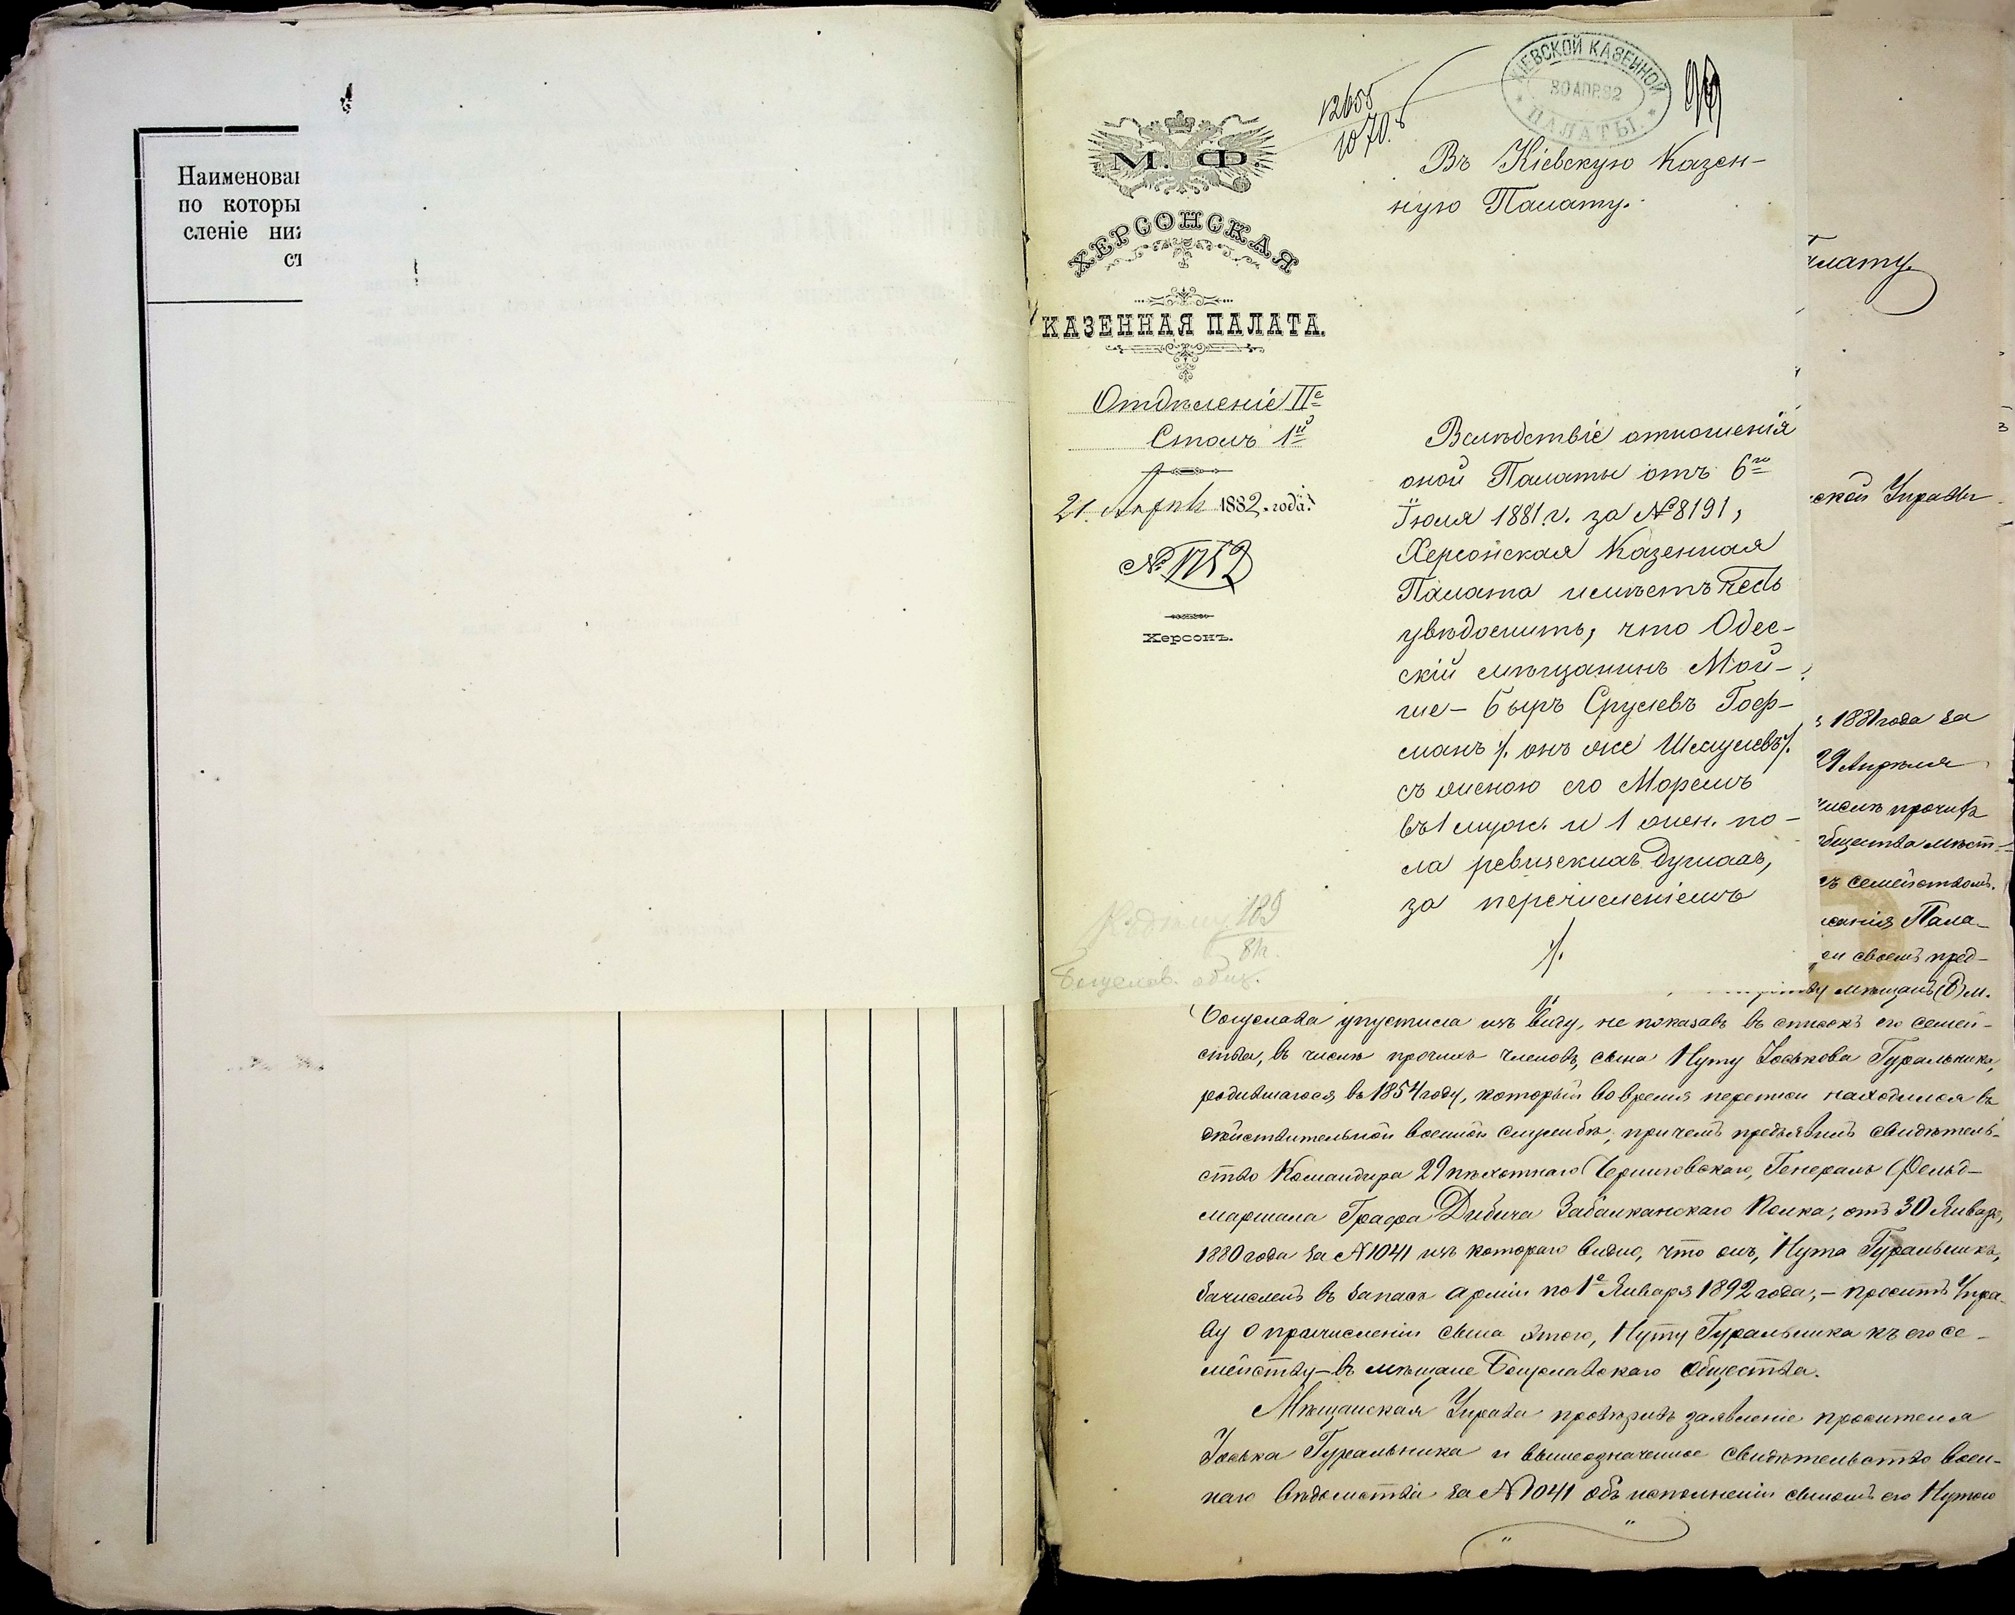 Наименован
по которы
сленіе ни
ст
КІЕВСКОЙ КАЗЕННОЙ
30 АПР. 82
ПАЛАТЫ.
М. Ф.
ХЕРСОНСКАЯ
КАЗЕННАЯ ПАЛАТА.
Отдѣленіе IIе
Столъ 1й
21 Апрѣля 1882 года.
№ 1752
Херсонъ.
Къ дѣлу 189
Богуслав. общ.
Въ Кіевскую Казен-
ную Палату.
Вслѣдствіе отношенія
оной Палаты отъ 6го
Іюля 1881 г. за № 8191,
Херсонская Казенная
Палата имѣетъ честь
увѣдомить, что Одес-
скій мѣщанинъ Мой-
ше-Быръ Срулевъ Гоф-
манъ /. онъ же Шмулевъ /.
съ женою егоМоремъ
въ 1 муж. и 1 жен. по-
ла ревизскихъ душахъ,
за перечисленіемъ
/.
алату.
ской Управы
1881 года за
29 Апрѣля
числѣ прочихъ
общества мѣст-
съ семействомъ.
санія Пала-
ем своемъ пред-
мѣщанъ (В) м.
Богуслава упустила изъ виду, не показавъ въ спискѣ его семей-
ства, въ числѣ прочихъ членовъ, сына Нуту Іоськова Гуральника,
родившагося въ 1854 году, который во время переписи находился въ
дѣйствительной военной службѣ; при чемъ предъявилъ свидѣтель-
ство Командира 29 пѣхотнаго Черниговскаго, Генералъ Фельд-
маршала Графа Дибича Забалканскаго Полка, отъ 30 Января
1880 года за № 1041 изъ котораго видно, что онъ, Нута Гуральникъ,
зачисленъ въ запасъ арміи по 1е Января 1892 года; – проситъ Упра-
ву о причисленіи сына этого, Нуту Гуральника къ его се-
мейству – въ мѣщане Богуславскаго общества.
Мѣщанская Управа провѣривъ заявленіе просителя
Іоська Гуральника и вышеозначенное свидѣтельство воен-
наго вѣдомства за № 1041 объ исполненіи сыномъ его Нутою